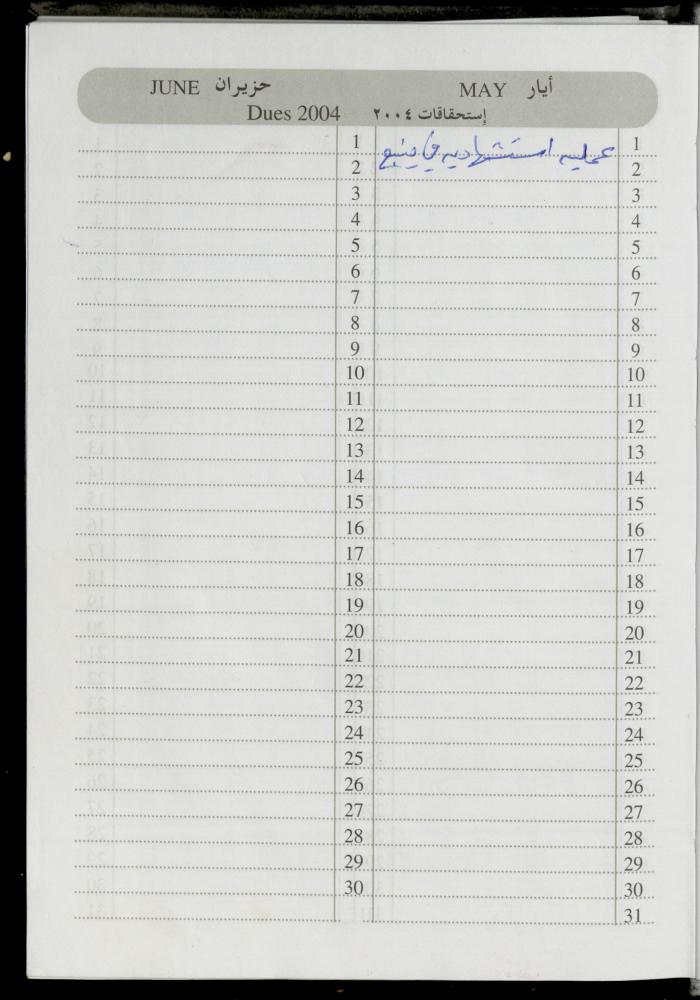 أيار MAY حزيران JUNE
إستحقاقات ٢٠٠٤ Dues 2004
1 عمليه استشهاديه في ينبع 1
2 2
3 3
4 4
5 5
6 6
7 7
8 8
9 9
10 10
11 11
12 12
13 13
14 14
15 15
16 16
17 17
18 18
19 19
20 20
21 21
22 22
23 23
24 24
25 25
26 26
27 27
28 28
29 29
30 30
31